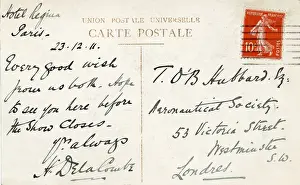 Hotel Regina
Paris.
23.12.11.
UNION POSTALE UNIVERSELLE
CARTE POSTALE
10
Every good wish
from us both. Hope
to see you here before
the Show closes.
Yrs always
H. DelaCombe
T. O'B Hubbard. Esq:
Aeronautical Society.
53 Victoria Street.
Westminster
S.W.
Londres.